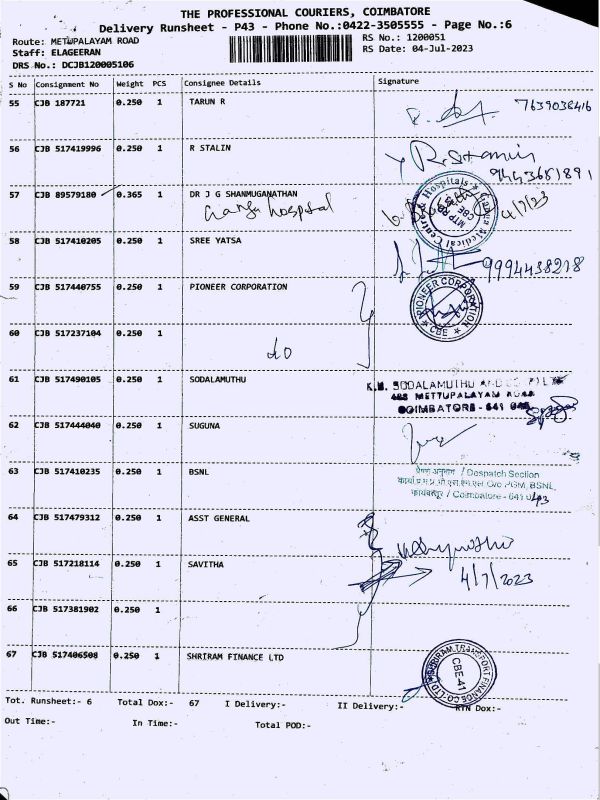 THE PROFESSIONAL COURIERS, COIMBATORE
Delivery Runsheet - P43 - Phone No.:0422-3505555 - Page No.:6
Route: METUPALAYAM ROAD
Staff: ELAGEERAN
DRS No.: DCJB120005106
RS No.: 1200051
RS Date: 04-Jul-2023
S No Consignment No Weight PCS Consignee Details Signature
55 CJB 187721 0.250 1 TARUN R
7639038416
56 CJB 517419996 0.250 1 R STALIN
R. Stalin
9443681891
57 CJB 89579180 0.365 1 DR J G SHANMUGANATHAN
Ganga hospital
Ganga Medical Centre & Hospitals
MTP RD
CBE
4/7/23
58 CJB 517410205 0.250 1 SREE YATSA
9994438218
59 CJB 517440755 0.250 1 PIONEER CORPORATION
PIONEER CORPORATION
CBE
60 CJB 517237104 0.250 1
do
61 CJB 517490105 0.250 1 SODALAMUTHU
K.M. SODALAMUTHU AND CO
METTUPALAYAM ROAD
COIMBATORE - 641
62 CJB 517444040 0.250 1 SUGUNA
63 CJB 517410235 0.250 1 BSNL
प्रेषण अनुभाग / Despatch Section
O/o PGM, BSNL,
कोयंबत्तूर / Coimbatore - 641 043
64 CJB 517479312 0.250 1 ASST GENERAL
65 CJB 517218114 0.250 1 SAVITHA
4/7/2023
66 CJB 517381902 0.250 1
67 CJB 517406508 0.250 1 SHRIRAM FINANCE LTD
SHRIRAM TRANSPORT FINANCE CO. LTD
CBE-41
Tot. Runsheet:- 6 Total Dox:- 67 I Delivery:- II Delivery:- RTN Dox:-
Out Time:- In Time:- Total POD:-